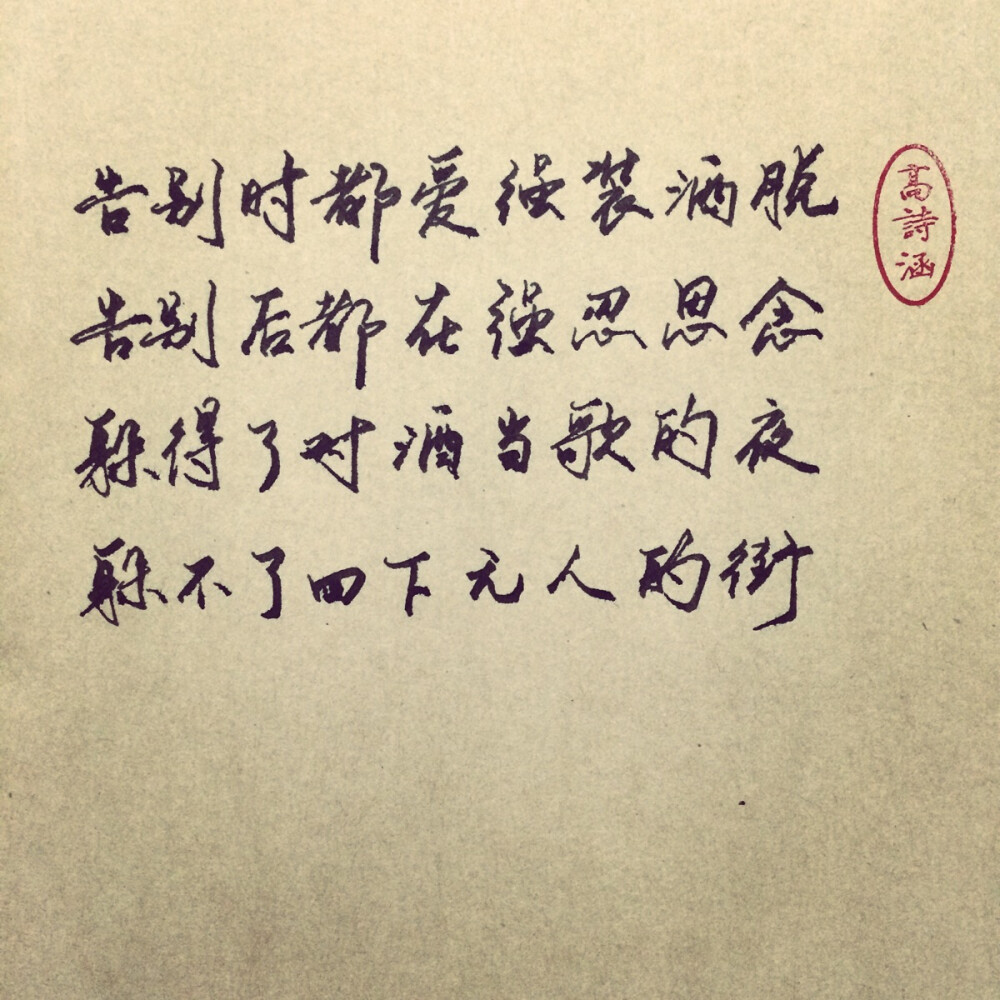 告别时都爱强装洒脱
告别后都在强忍思念
躲得了对酒当歌的夜
躲不了四下无人的街
高詩涵